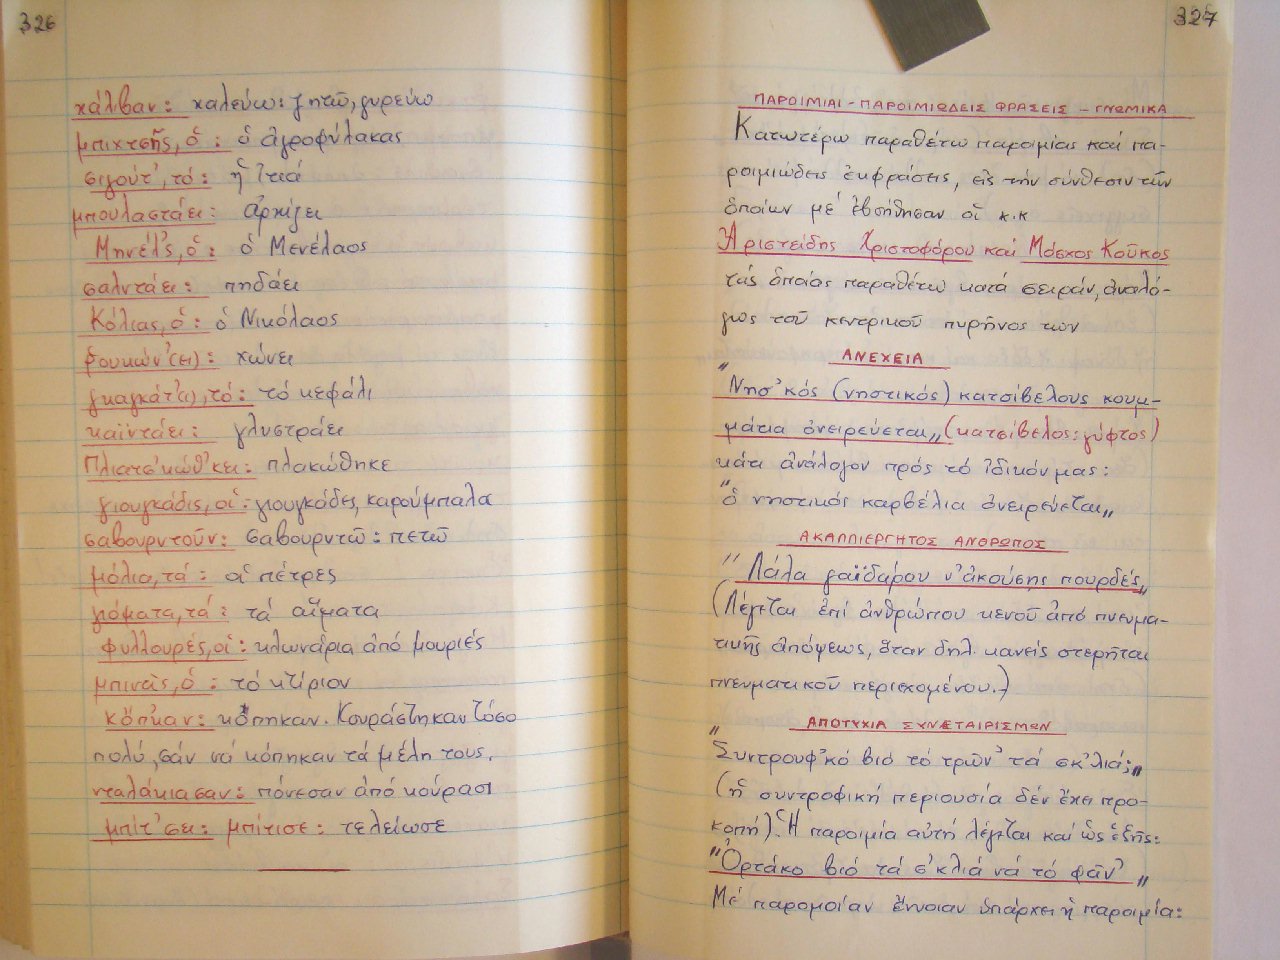 326
χάλιβαν: χαλεύω: ζητῶ, γυρεύω
μπιχτσῆς, ὁ: ὁ ἀγροφύλακας
σιγούτ', τό: ἡ ἰτιά
μπουλαστάει: ἀρχίζει
Μηνέλ'ς, ὁ: ὁ Μενέλαος
σαλντάει: πηδάει
Κόλιας, ὁ: ὁ Νικόλαος
φουκών'(ει): χώνει
γκαγκάτ'(ι), τό: τό κεφάλι
καϊντάει: γλυστράει
Πλιατσ'κώθ'κει: πλακώθηκε
γιουγκάδις, οἱ: γιουγκάδες, καρούμπαλα
σαβουρντοῦν: σαβουρντῶ: πετῶ
μόλια, τά: οἱ πέτρες
γιόματα, τά: τά αἵματα
φυλλουρές, οἱ: κλωνάρια ἀπό μουριές
μπινᾶς, ὁ: τό κτίριον
κόπ'καν: κόπηκαν. Κουράστηκαν τόσο
πολύ, σάν νά κόπηκαν τά μέλη τους.
νταλάκιασαν: πόνεσαν ἀπό κούραση
μπίτ'σει: μπίτισε: τελείωσε
327
ΠΑΡΟΙΜΙΑΙ - ΠΑΡΟΙΜΙΩΔΕΙΣ ΦΡΑΣΕΙΣ - ΓΝΩΜΙΚΑ
Κατωτέρω παραθέτω παροιμίας καί πα-
ροιμιώδεις ἐκφράσεις, εἰς τήν σύνθεσιν τῶν
ὁποίων μέ ἐβοήθησαν οἱ κ.κ
Ἀριστείδης Χριστοφόρου καί Μόσχος Κοῦκος
τάς ὁποίας παραθέτω κατά σειράν, ἀναλό-
γως τοῦ κεντρικοῦ πυρῆνος των
ΑΝΕΧΕΙΑ
"Νησ'κός (νηστικός) κατσίβελους κουμ-
μάτια ὀνειρεύεται„ (κατσίβελος: γύφτος)
κάτι ἀνάλογον πρός τό ἰδικόν μας:
"ὁ νηστικός καρβέλια ὀνειρεύεται„
ΑΚΑΛΛΙΕΡΓΗΤΟΣ ΑΝΘΡΩΠΟΣ
"Λάλα γαϊδάρου ν' ἀκούσης πουρδές„
(Λέγεται ἐπί ἀνθρώπου κενοῦ ἀπό πνευμα-
τικῆς ἀπόψεως, ὅταν δηλ. κανείς στερῆται
πνευματικοῦ περιεχομένου.)
ΑΠΟΤΥΧΙΑ ΣΥΝΕΤΑΙΡΙΣΜΩΝ
"Συντρουφ'κό βιό τό τρῶν' τά σκ'λιά;„
(ἡ συντροφική περιουσία δέν ἔχει προ-
κοπή). Ἡ παροιμία αὐτή λέγεται καί ὡς ἑξῆς:
"Ὀρτάκο βιό τά σ'κλιά νά τό φᾶν'„
Μέ παρομοίαν ἔννοιαν ὑπάρχει ἡ παροιμία: